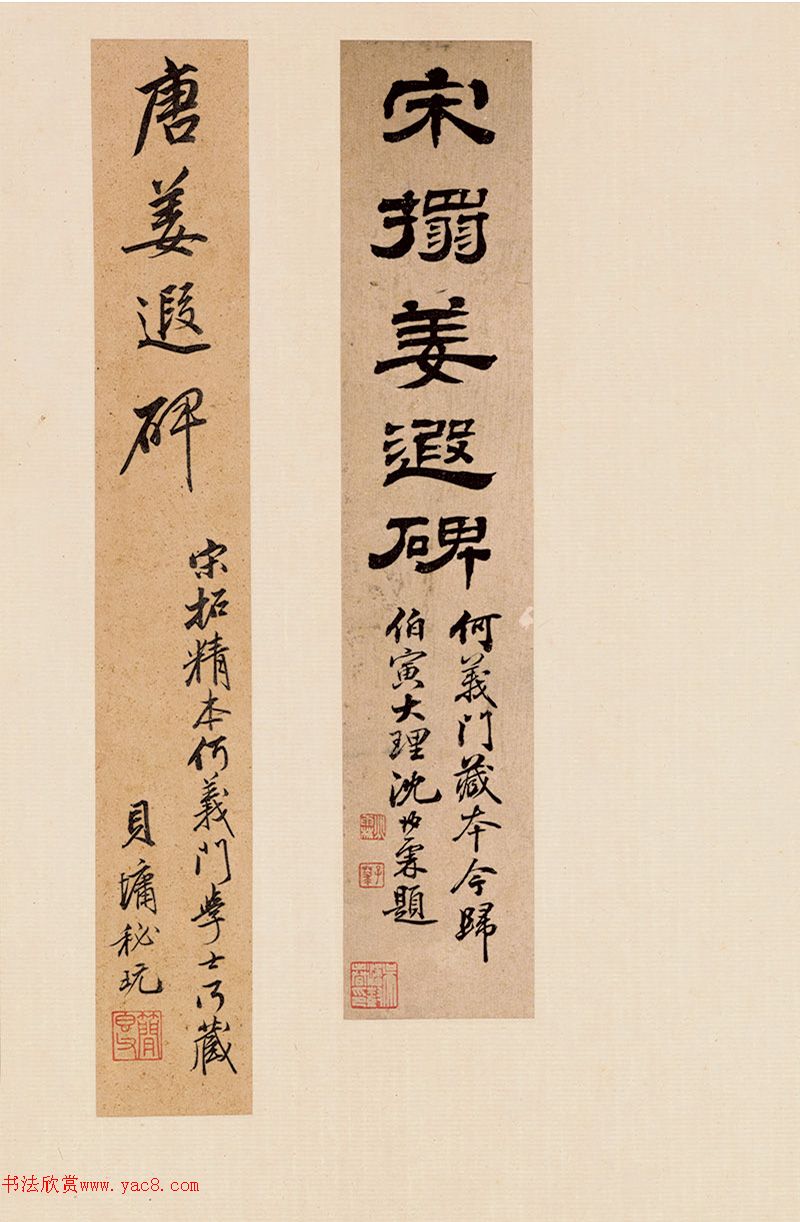 宋搨姜遐碑
何義門藏本今歸
伯寅大理沈兆霖題
唐姜遐碑
宋拓精本何義門學士所藏
貝墉秘玩
书法欣赏www.yac8.com